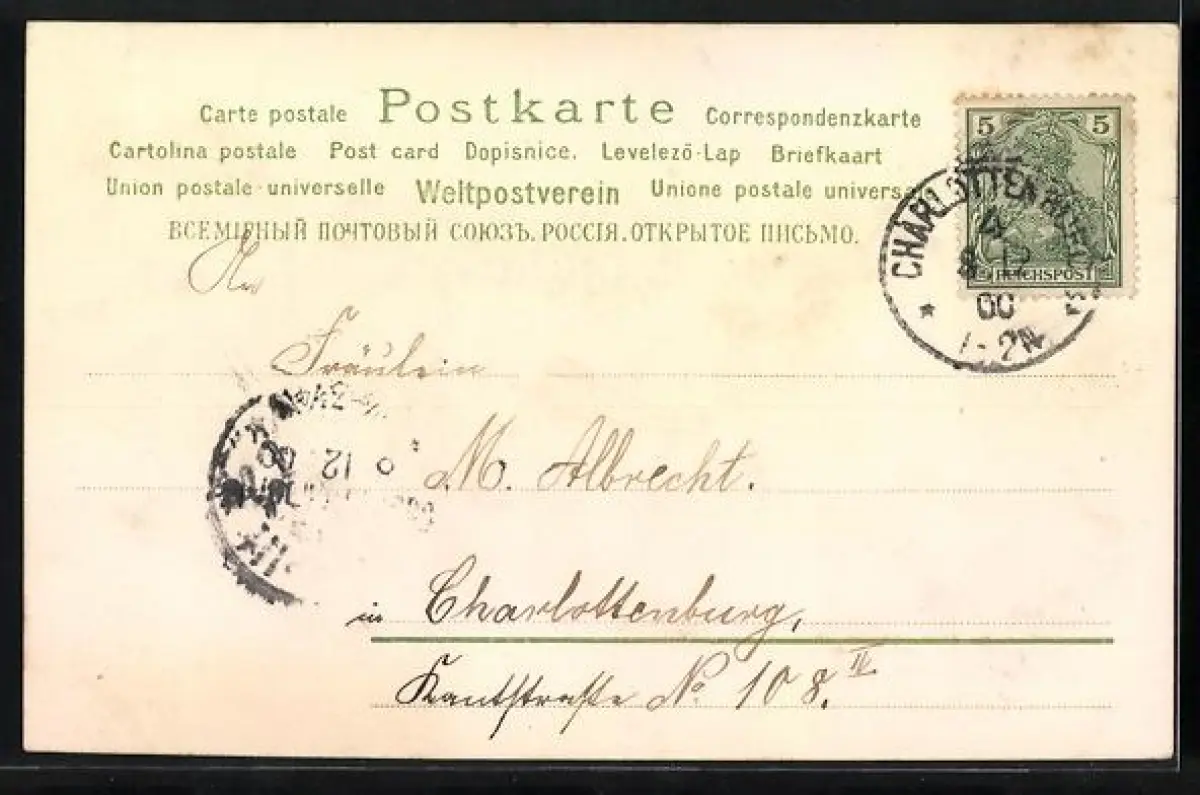 Carte postale Postkarte Correspondenzkarte
Cartolina postale Post card Dopisnice. Levelező-Lap Briefkaart
Union postale universelle Weltpostverein Unione postale universa
ВСЕМІРНЫЙ ПОЧТОВЫЙ СОЮЗЪ. РОССІЯ. ОТКРЫТОЕ ПИСЬМО.
5 5
REICHSPOST
CHARLOTTENBURG
8 12
00
1-2N
An
Fräulein
M. Albrecht.
12 00
in Charlottenburg,
Kantstraße No 108. IV